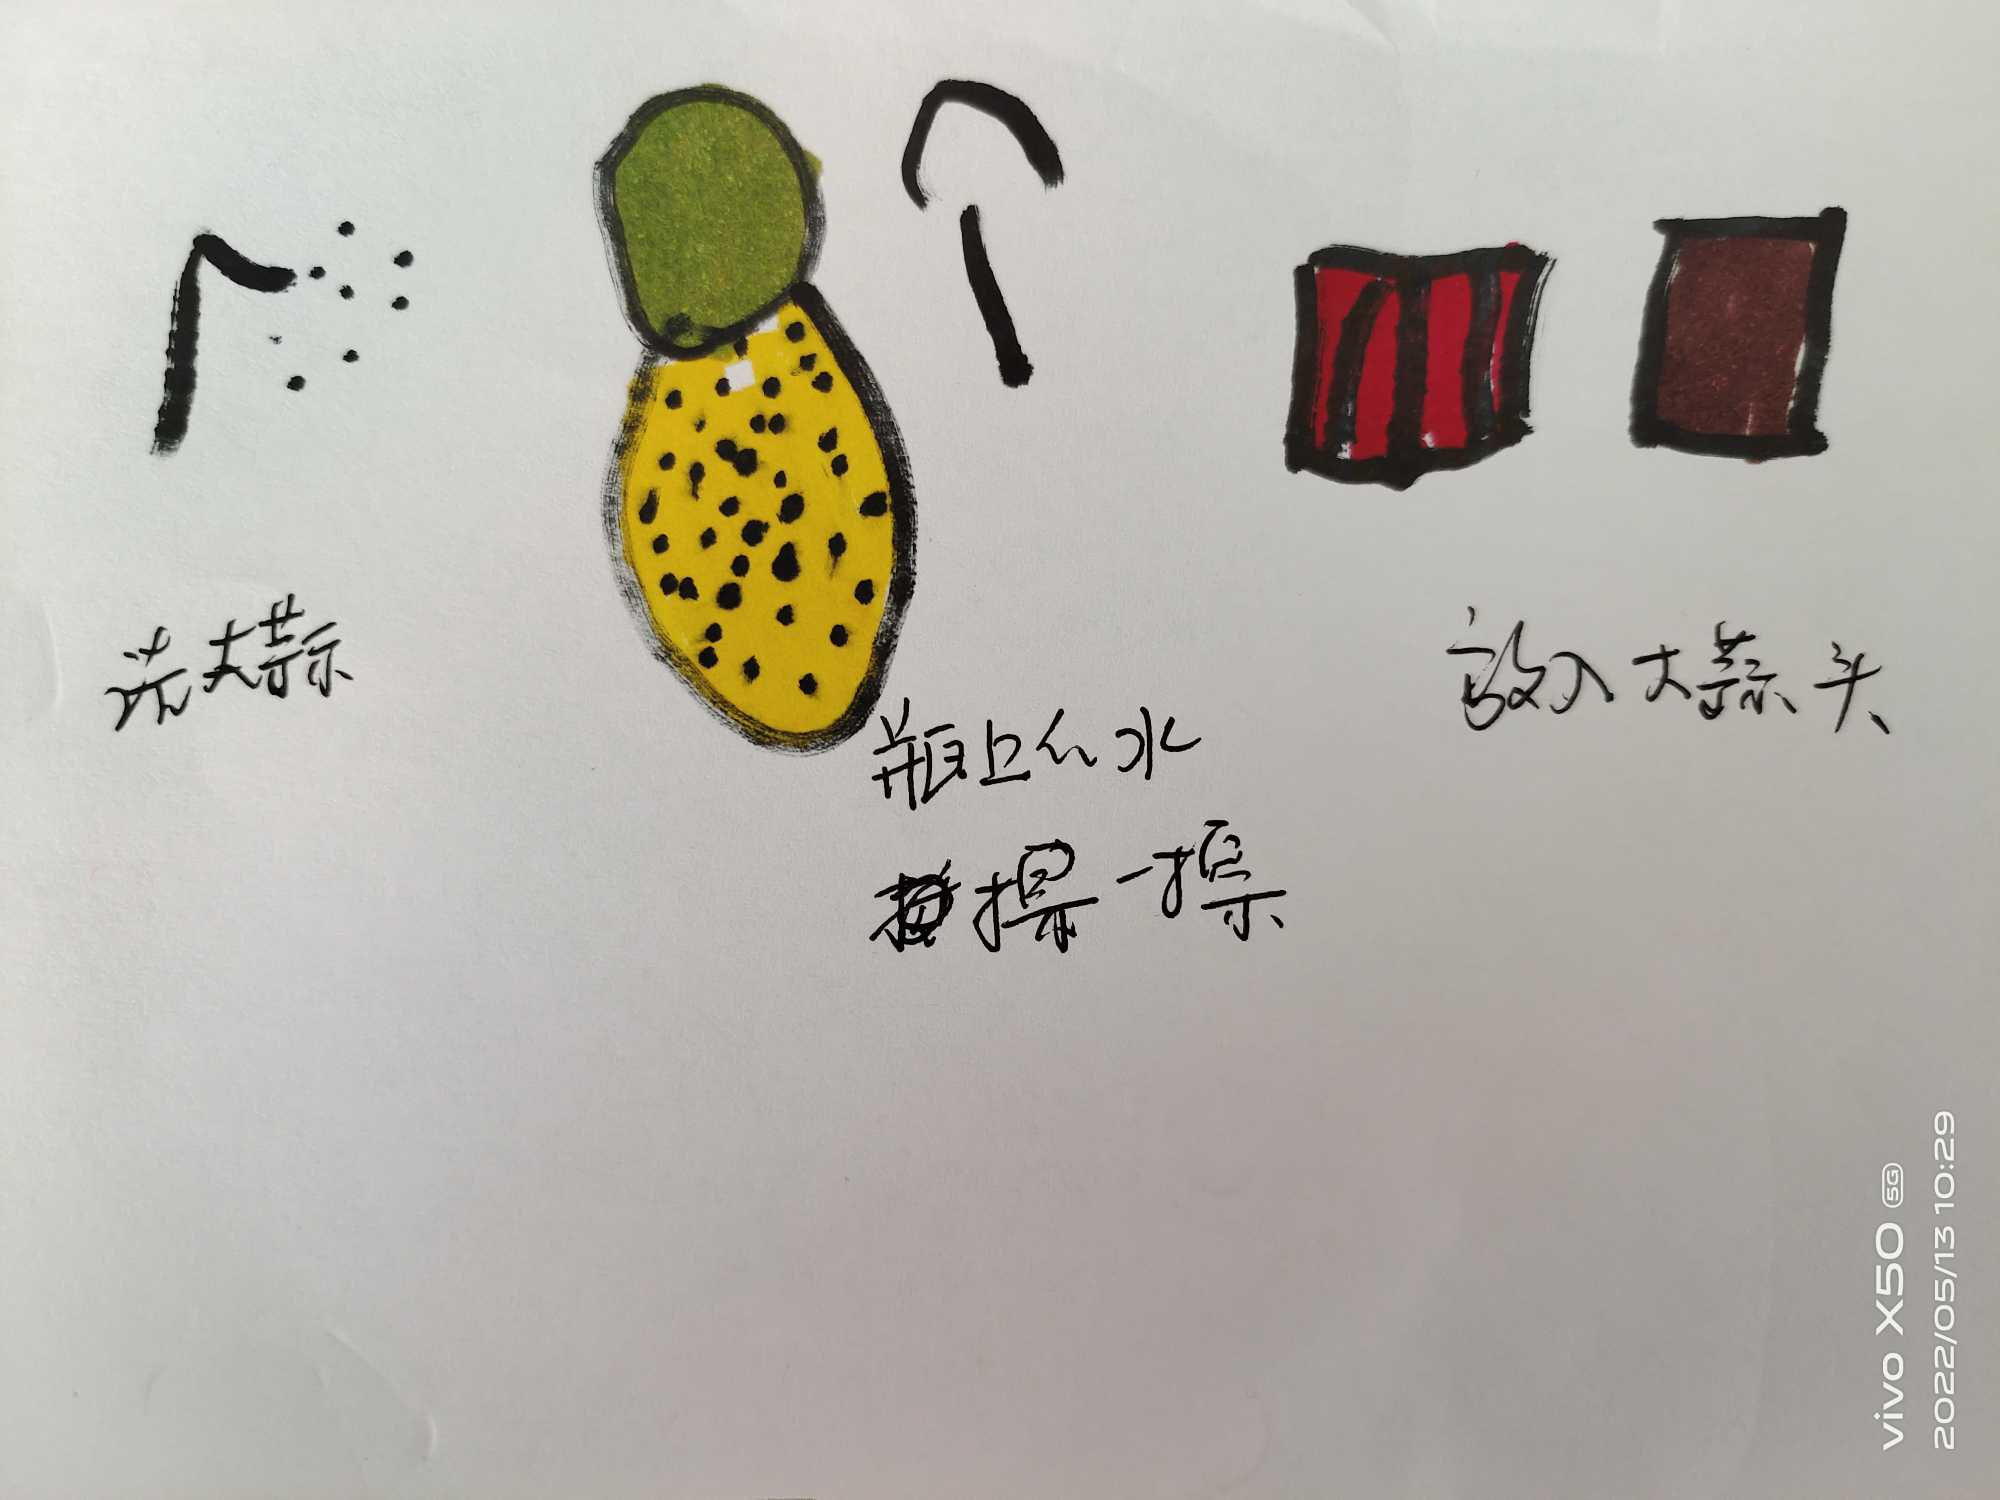 洗大蒜
瓶上的水
擦一擦
放入大蒜头
vivo X50 5G
2022/05/13 10:29